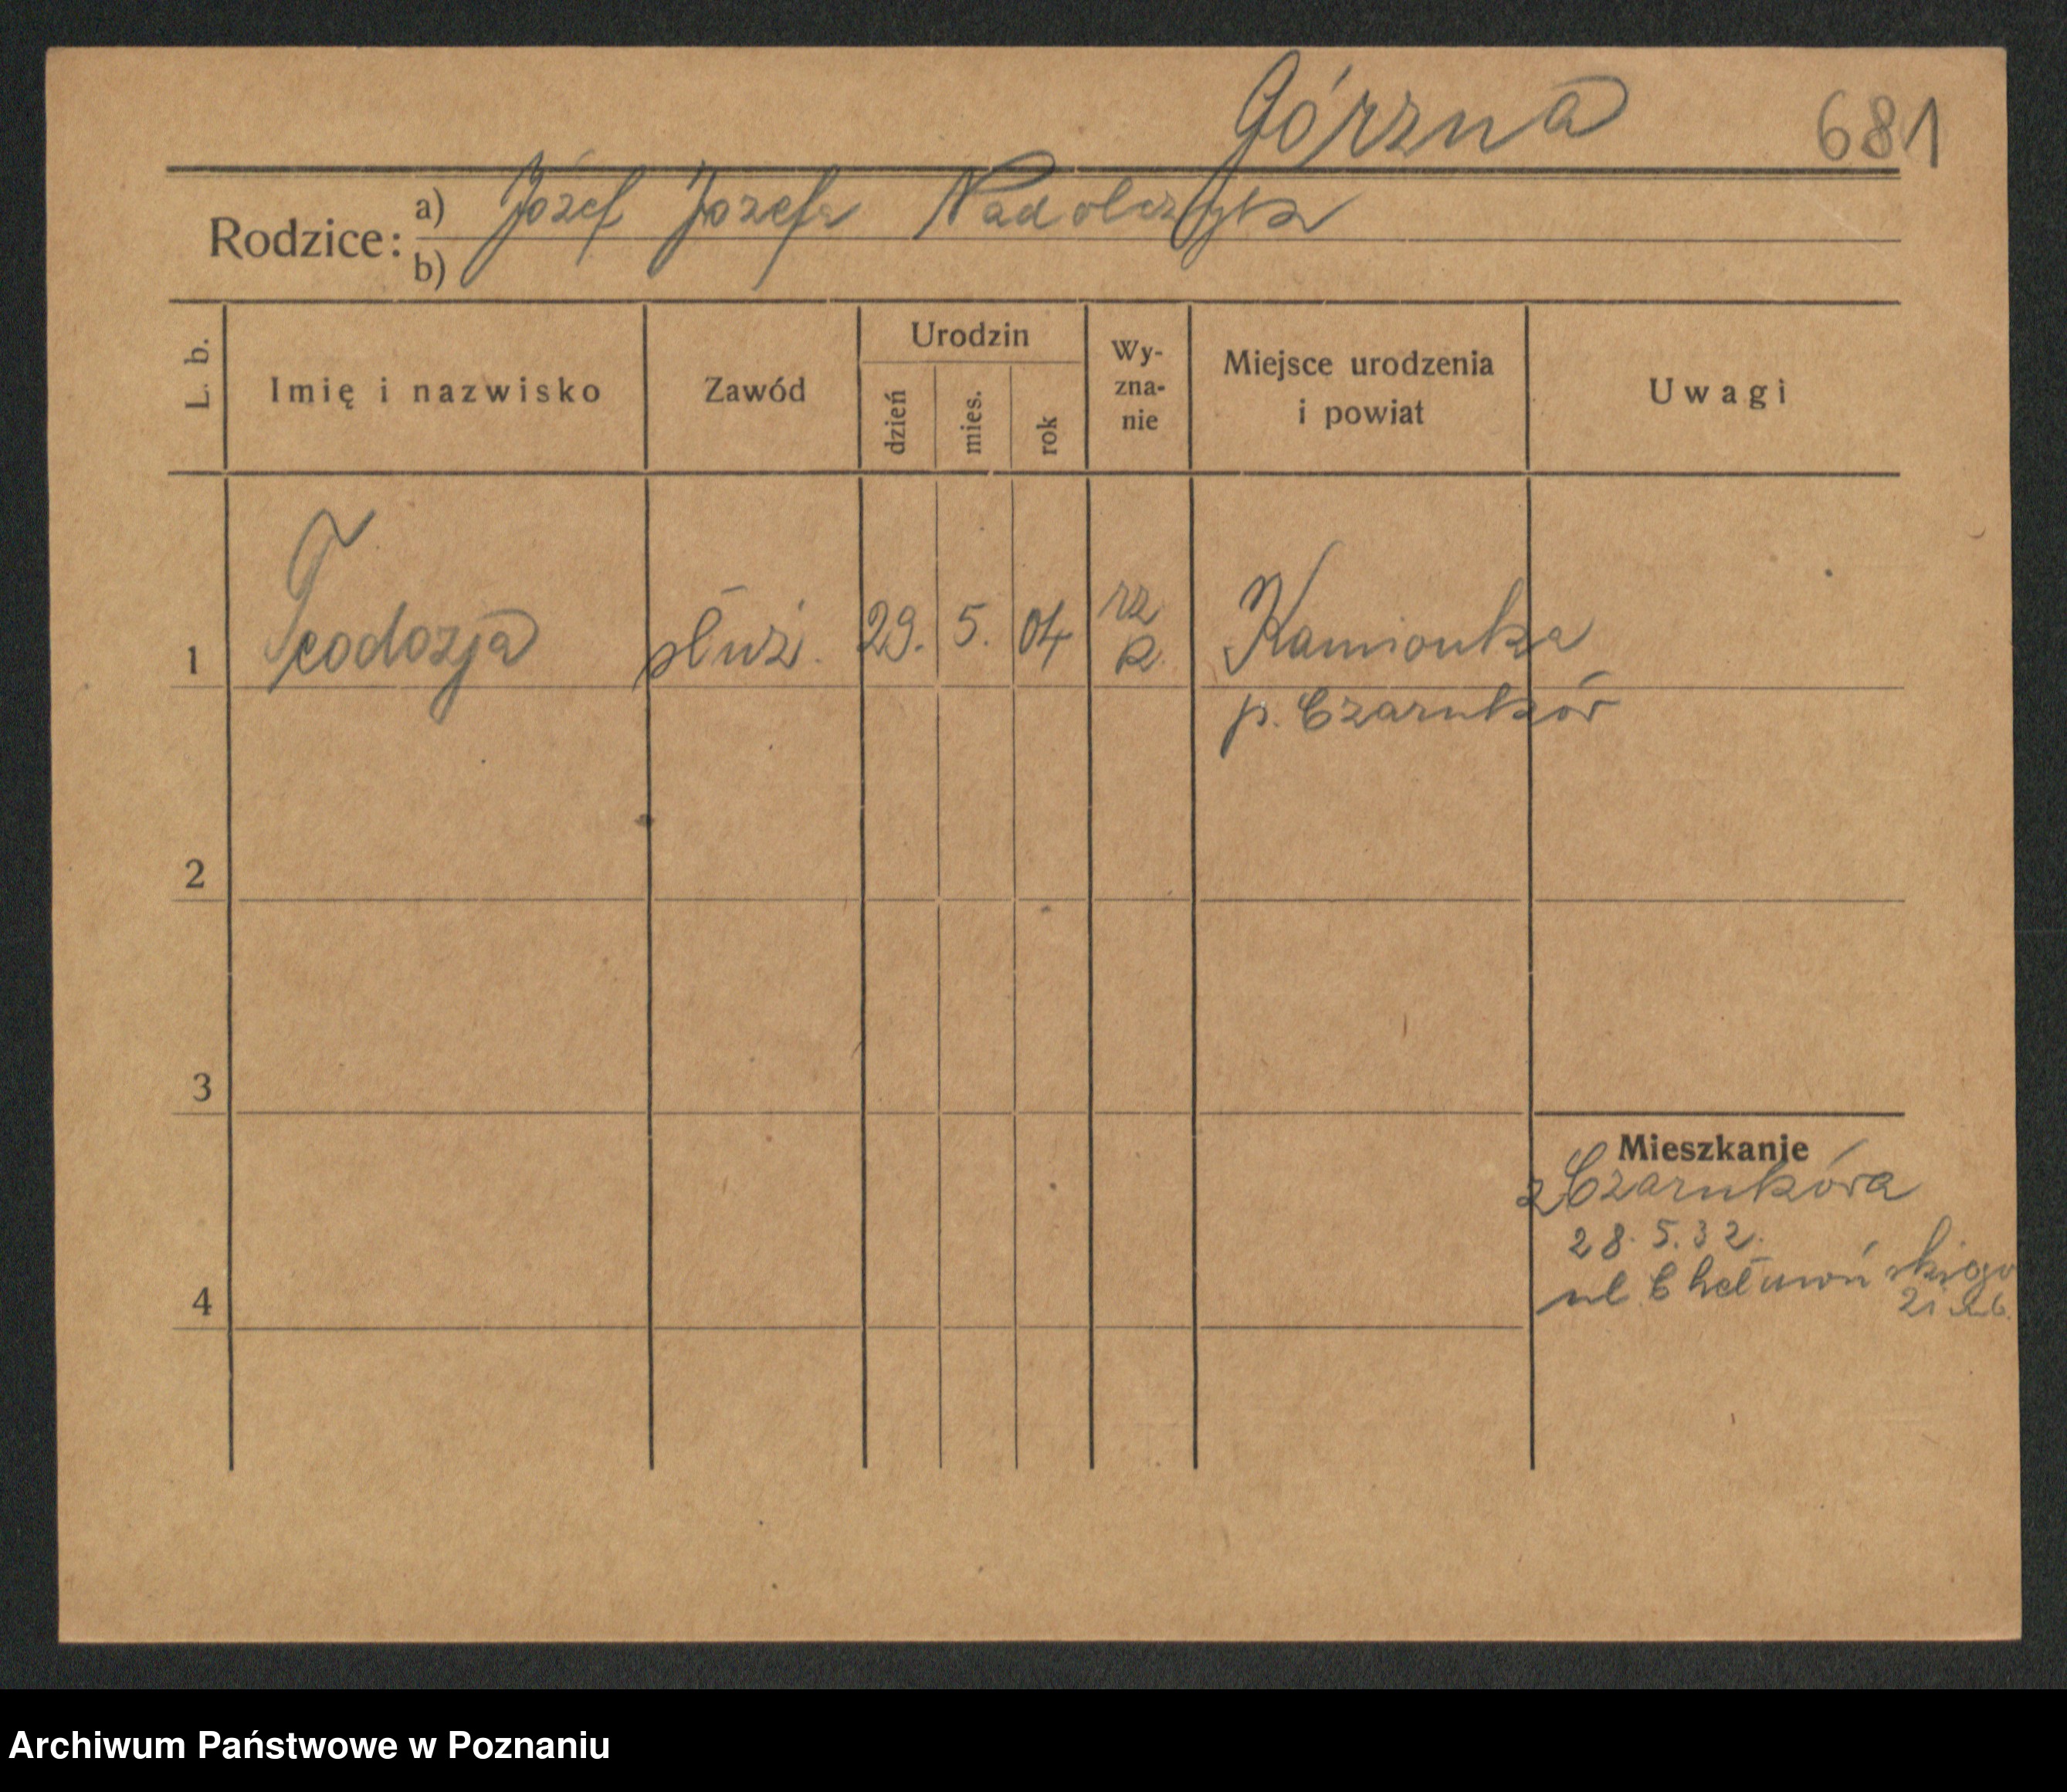 Górzna 681
Rodzice: a) Józef Jozefa Nadolczyk
b)
L. b. Imię i nazwisko Zawód Urodzin dzień mies. rok Wy-zna-nie Miejsce urodzenia i powiat Uwagi
1 Teodozja służ. 29. 5. 04 rz k Kamionka
p. Czarnków
2
3
Mieszkanie
z Czarnkówa
28. 5. 32.
4 ul
21
Archiwum Państwowe w Poznaniu